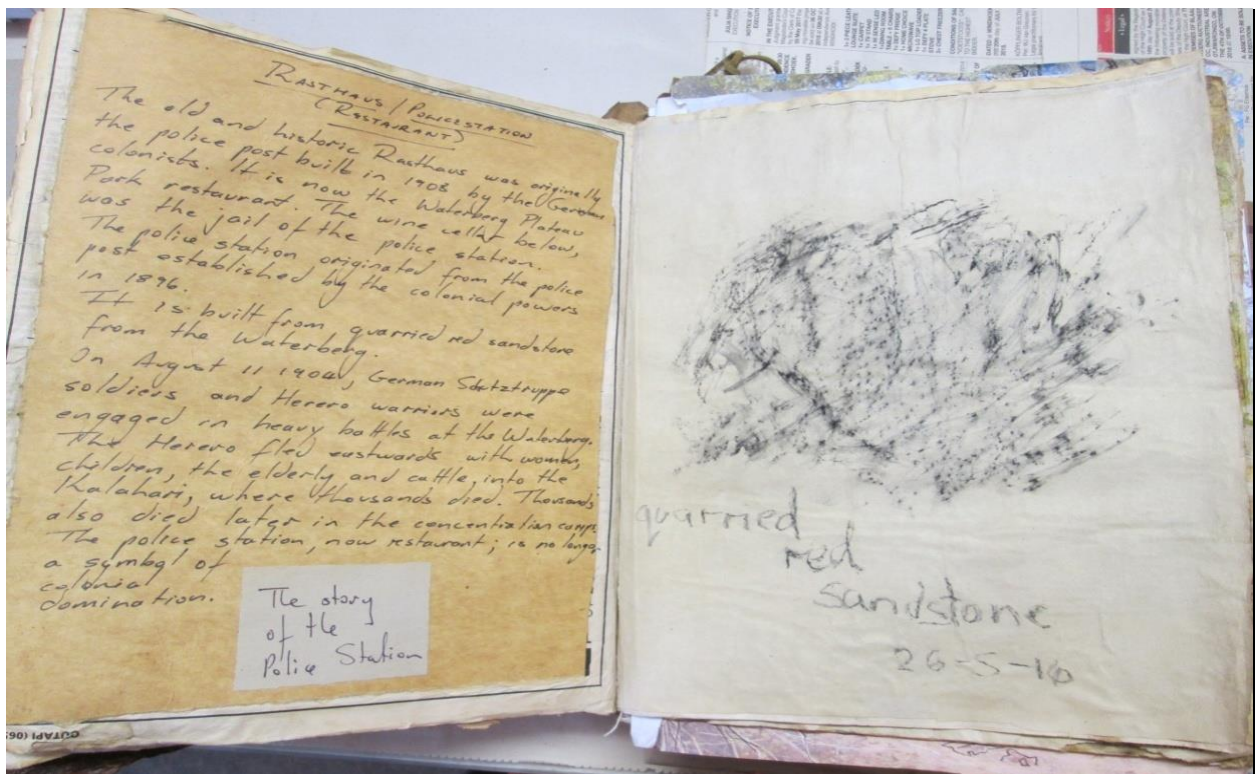 RASTHAUS / POLICE STATION
(RESTAURANT)
The old and historic Rasthaus was originally
the police post built in 1908 by the German
colonists. It is now the Waterberg Plateau
Park restaurant. The wine cellar below,
was the jail of the police station.
The police station originated from the police
post established by the colonial powers
in 1896.
It is built from quarried red sandstone
from the Waterberg.
In August 11 1904, German Schutztruppe
soldiers and Herero warriors were
engaged in heavy battles at the Waterberg.
The Herero fled eastwards with women,
children, the elderly and cattle, into the
Kalahari, where thousands died. Thousands
also died later in the concentration camps.
The police station, now restaurant; is no longer
a symbol of
colonial
domination.
The story
of the
Police Station
OUTAPI (065
quarried
red
sandstone
26-5-16